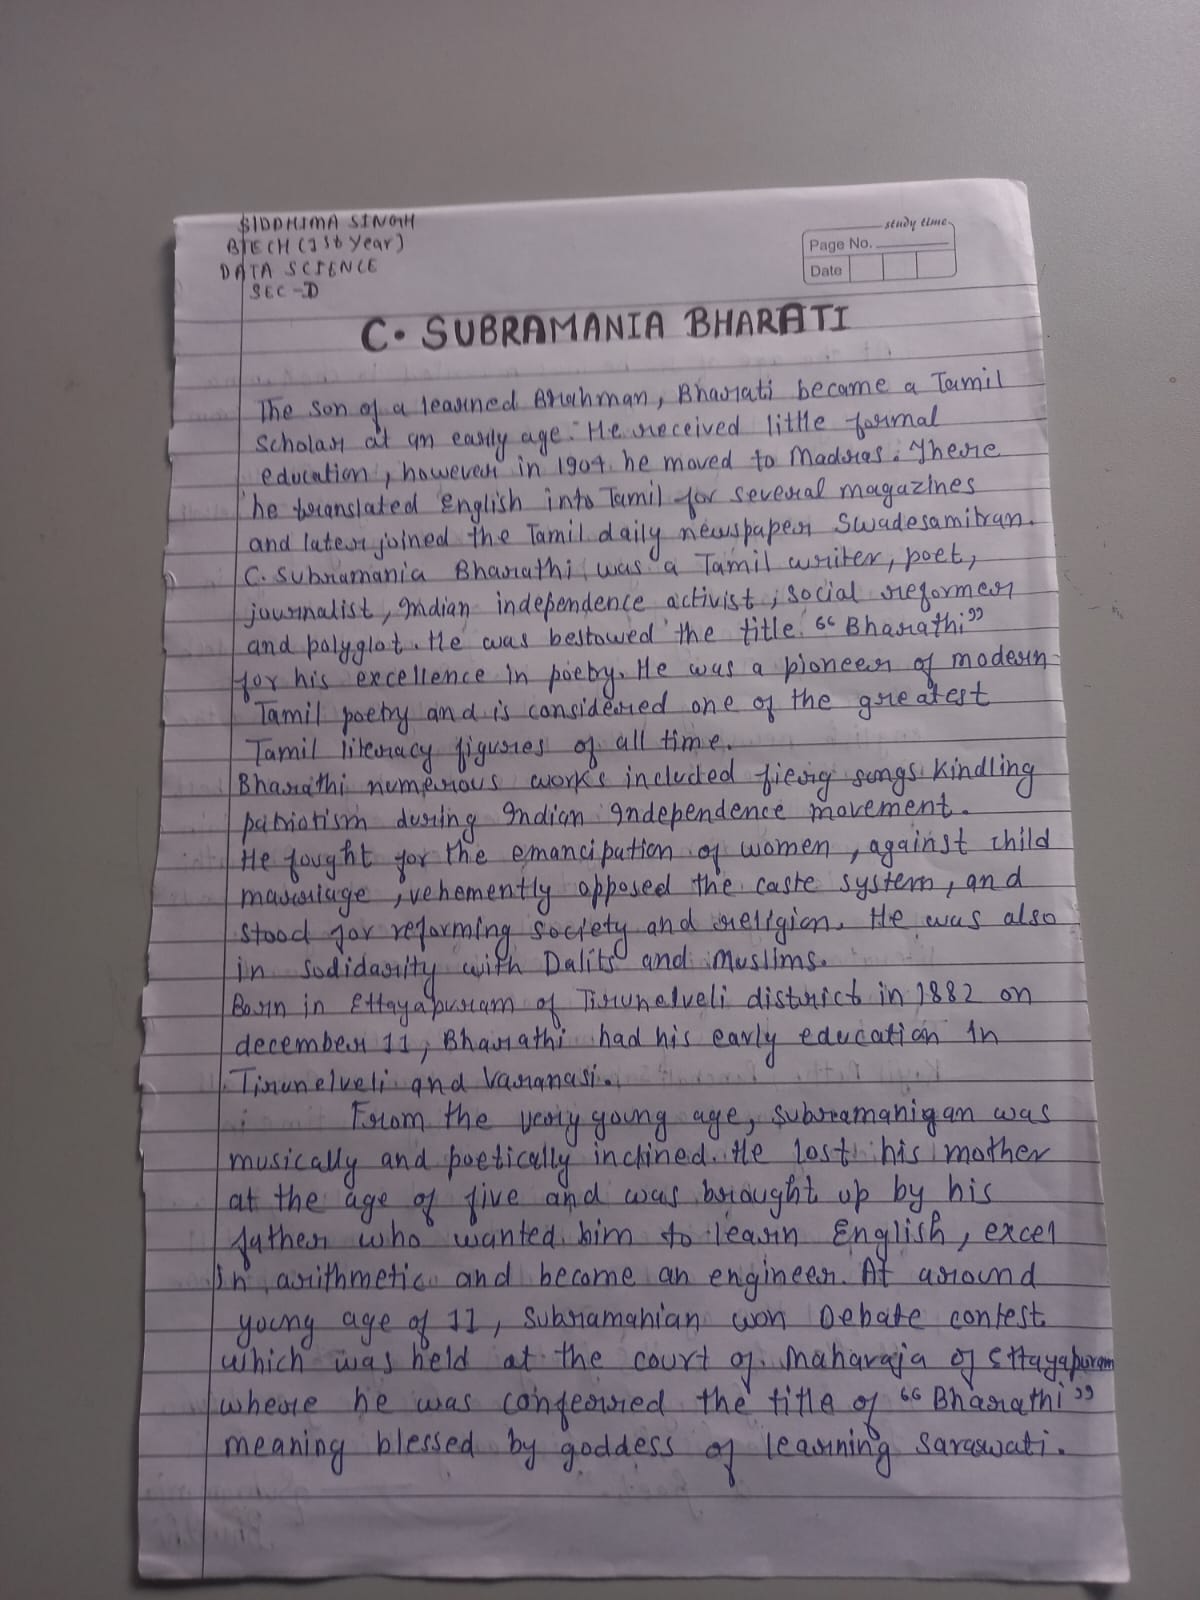 SIDDHIMA SINGH
BTECH (1st Year)
DATA SCIENCE
SEC-D
study time
Page No.
Date
C. SUBRAMANIA BHARATI
The son of a learned Brahman, Bharati became a Tamil
Scholar at an early age. He received little formal
education, however in 1904 he moved to Madras. There
he translated English into Tamil for several magazines
and later joined the Tamil daily newspaper Swadesamitran.
C. Subramania Bharathi was a Tamil writer, poet,
journalist, Indian independence activist, social reformer
and polyglot. He was bestowed the title "Bharathi"
for his excellence in poetry. He was a pioneer of modern
Tamil poetry and is considered one of the greatest
Tamil literacy figures of all time.
Bharathi numerous works included fierig songs kindling
patriotism during Indian Independence movement.
He fought for the emancipation of women, against child
marriage, vehemently opposed the caste system, and
stood for reforming society and religion. He was also
in sodidarity with Dalits and Muslims.
Born in Ettayapuram of Tirunelveli district in 1882 on
december 11, Bharathi had his early education in
Tirunelveli and Varanasi.
From the very young age, Subramanigan was
musically and poetically inclined. He lost his mother
at the age of five and was brought up by his
father who wanted him to learn English, excel
in arithmetic and become an engineer. At around
young age of 11, Subramanian won Debate contest
which was held at the court of Maharaja of Ettayapuram
where he was conferred the title of "Bharathi"
meaning blessed by goddess of learning saraswati.